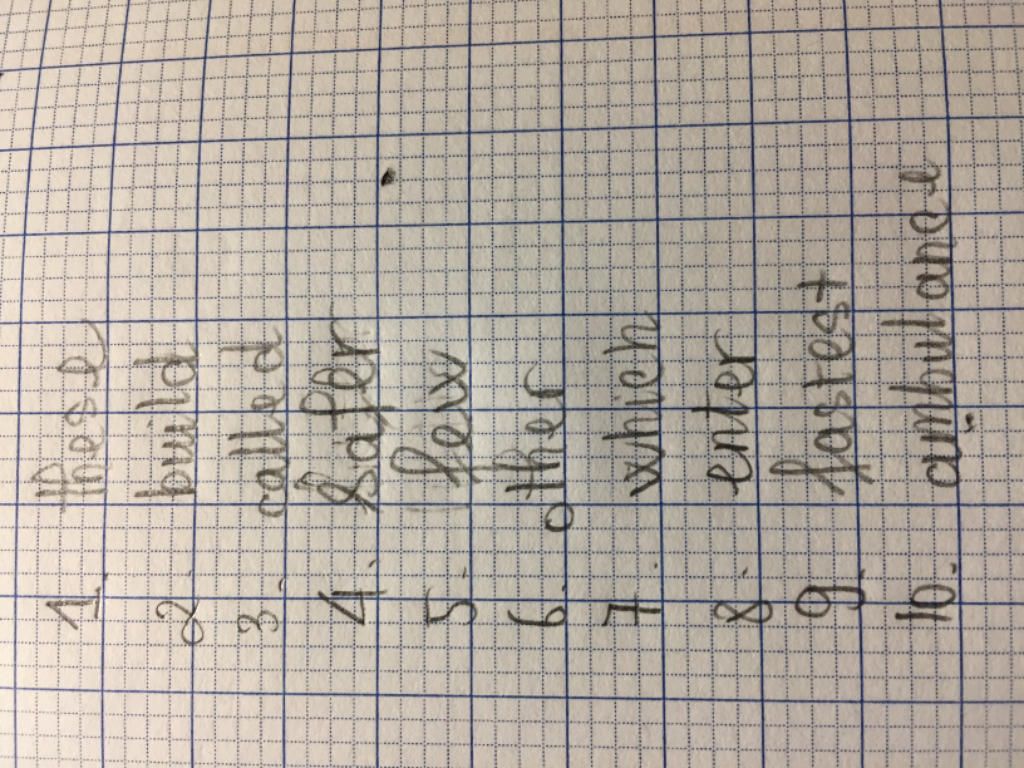 1. these
2. build
3. called
4. safer
5. few
6. other
7. which
8. enter
9. fastest
10. ambulane